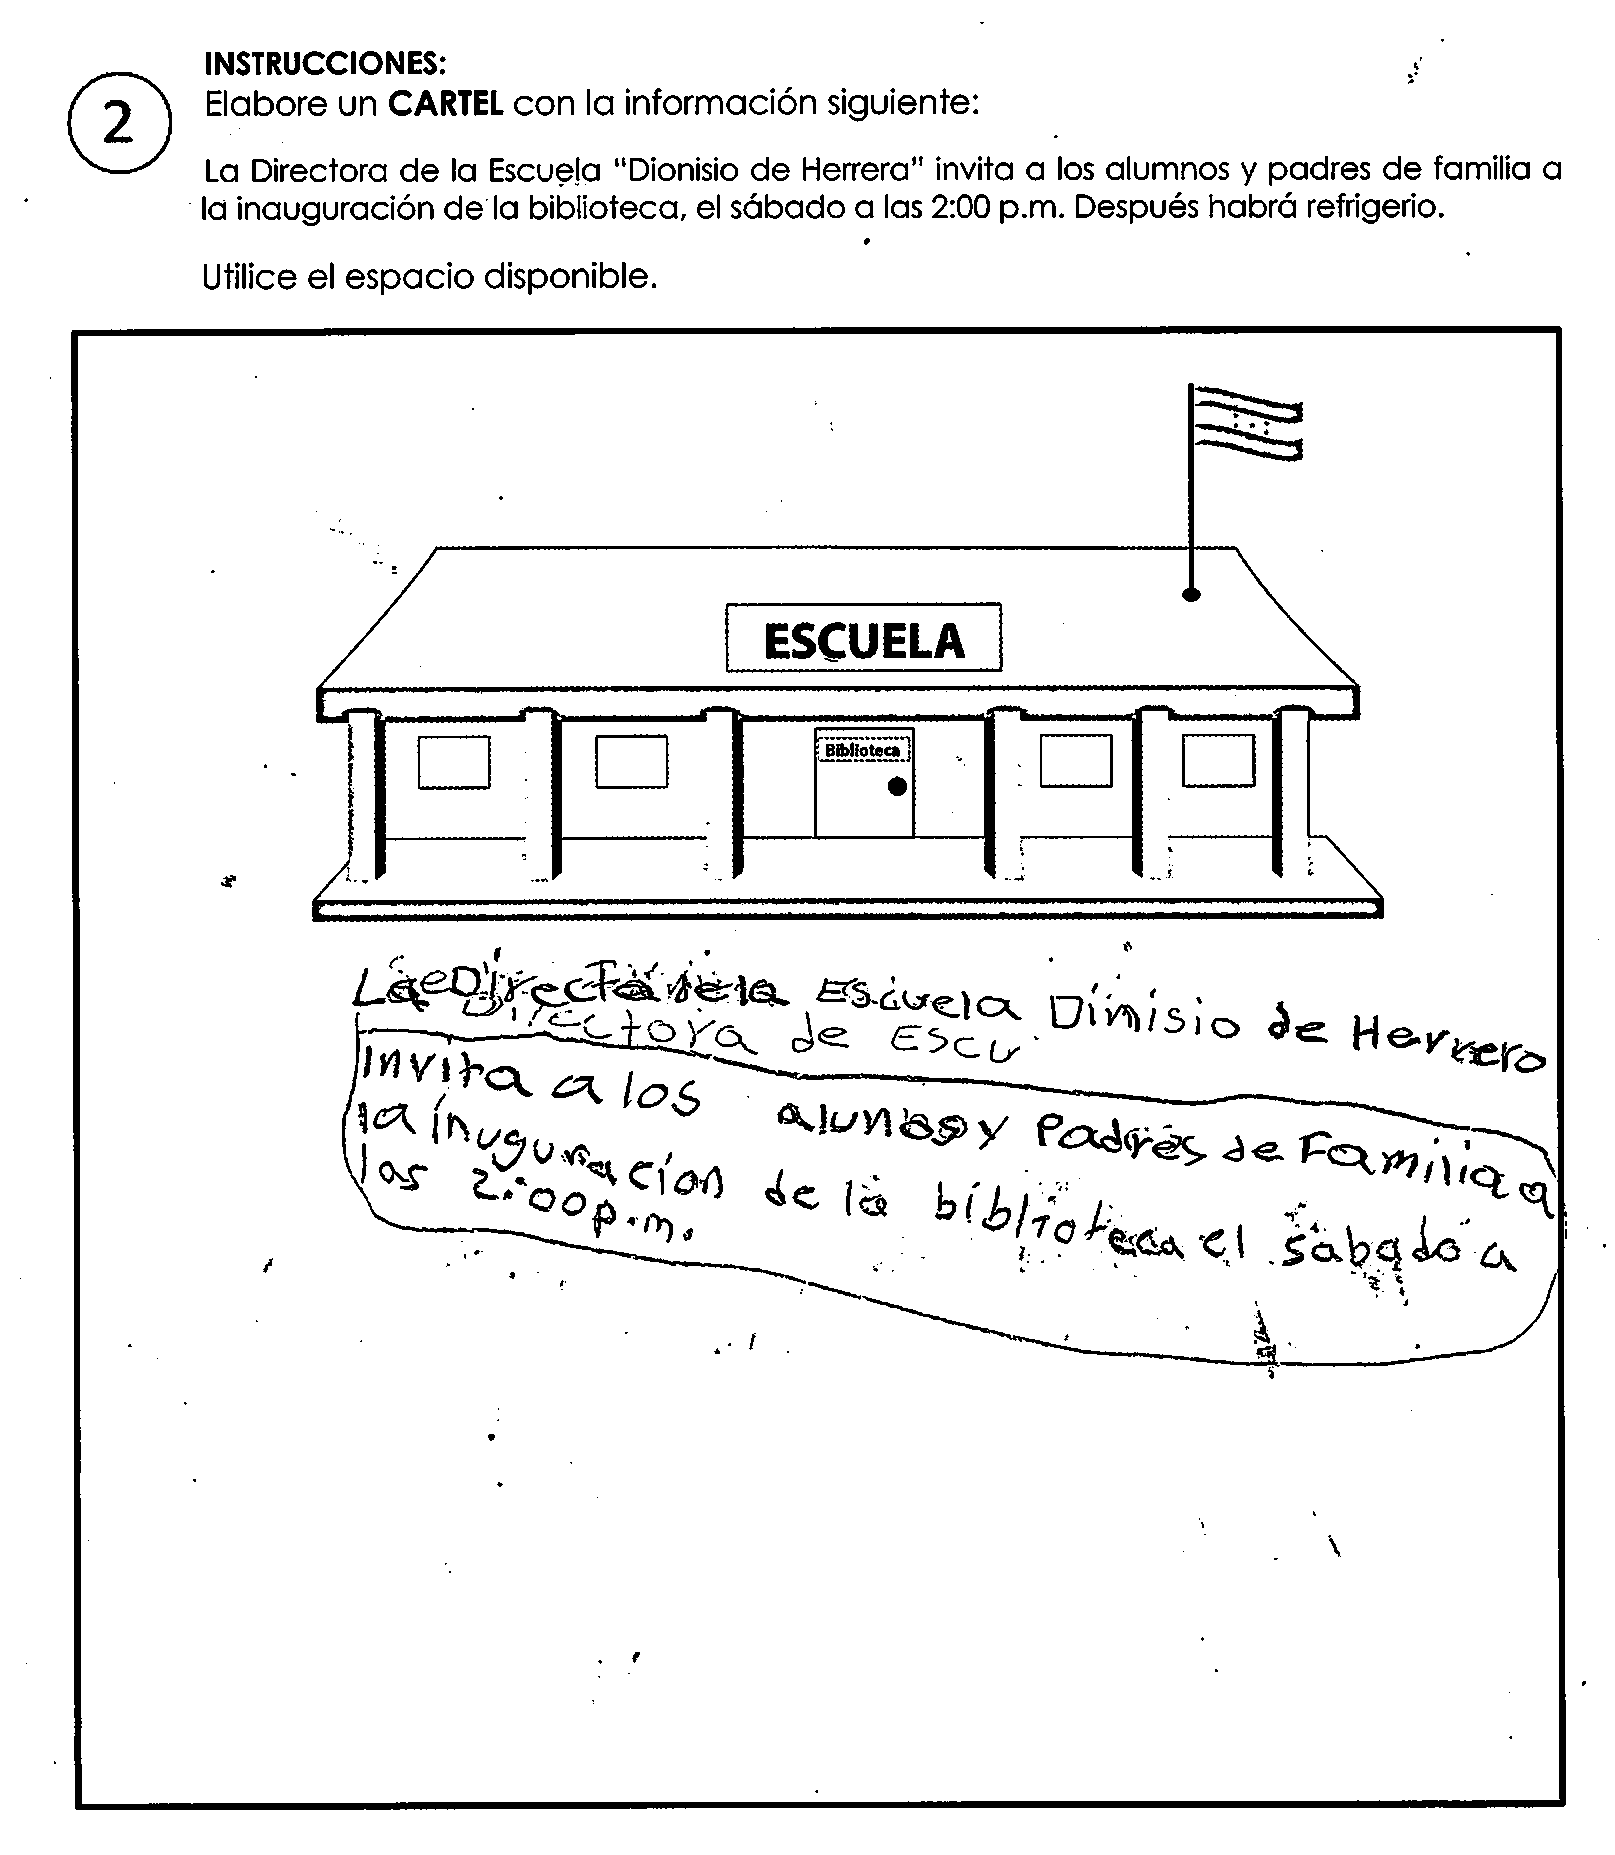 INSTRUCCIONES:
2
Elabore un CARTEL con la información siguiente:
La Directora de la Escuela "Dionisio de Herrera" invita a los alumnos y padres de familia a
la inauguración de la biblioteca, el sábado a las 2:00 p.m. Después habrá refrigerio.
Utilice el espacio disponible.
ESCUELA
Biblioteca
Escuela Dinisio de Herrero
Directora de Escu
Invita a los alunos y Padres de Familia a
la inuguracion de la biblioteca el sabado a
las 2:00 p.m.